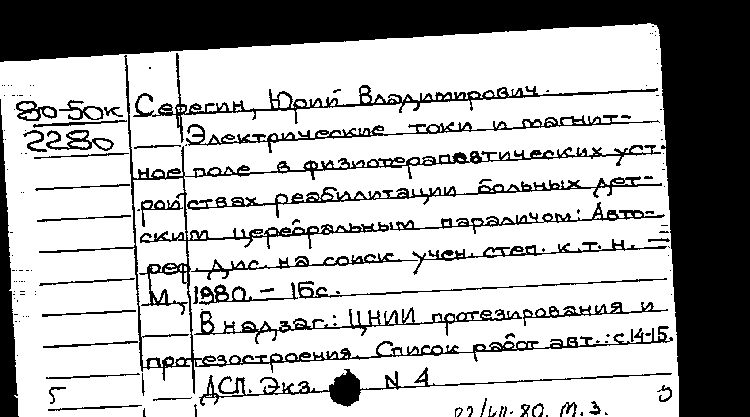 80-50к Серегин, Юрий Владимирович.
2280 Электрические токи и магнит-
ное поле в физиотерапевтических уст-
ройствах реабилитации больных дет-
ским церебральным параличом: Авто-
реф. дис. на соиск. учен. степ. к.т.н. —
М., 1980. – 15с.
В надзаг.: ЦНИИ протезирования и
протезостроения. Список работ авт.: с.14-15.
ДСП. Экз. N 4
5
80. м.з.